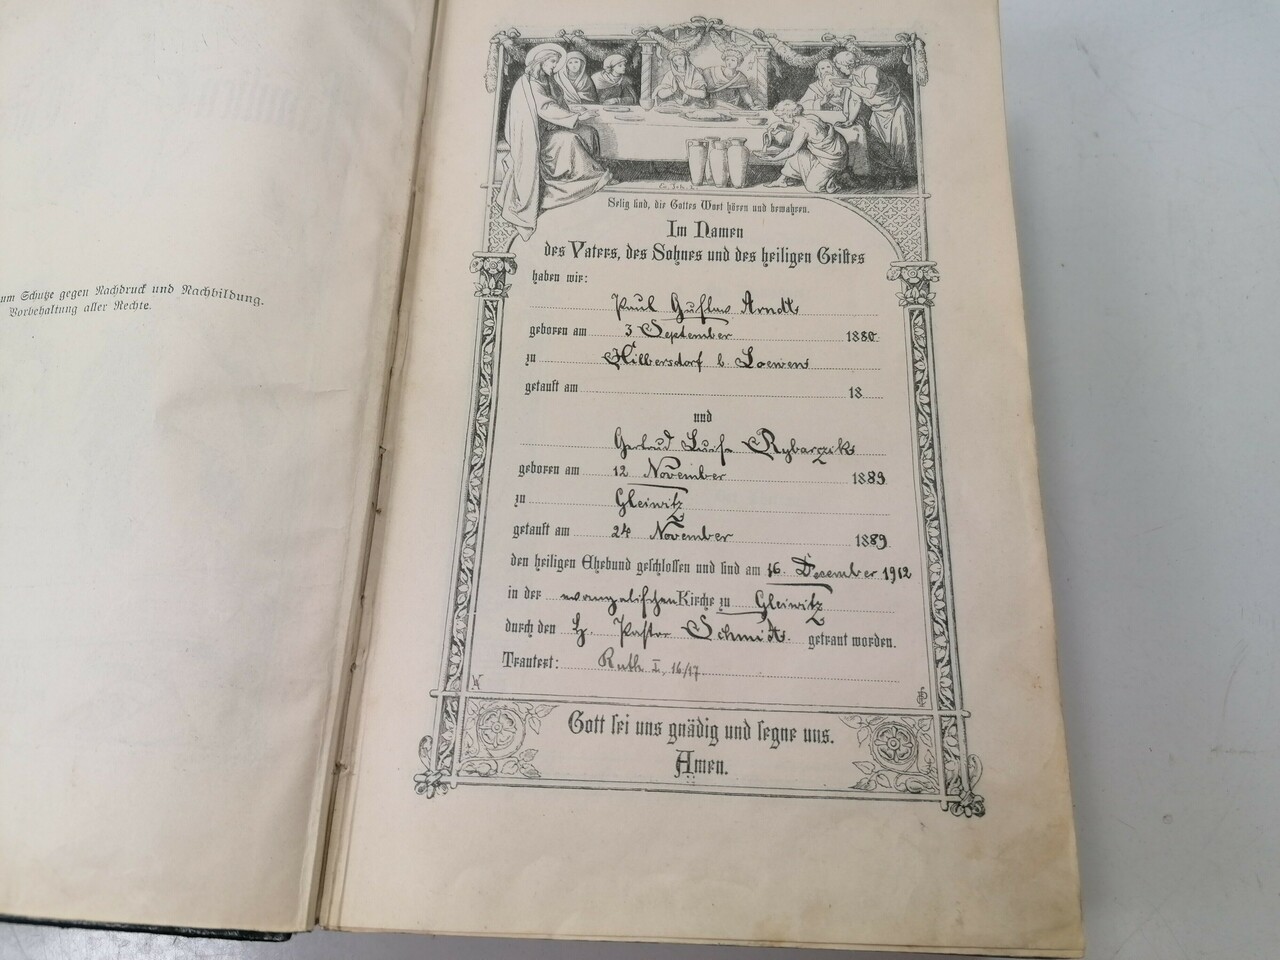 um Schutze gegen Nachdruck und Nachbildung.
Vorbehaltung aller Rechte.
Selig sind, die Gottes Wort hören und bewahren.
Im Namen
des Vaters, des Sohnes und des heiligen Geistes
haben wir:
Paul Gustav Arndt
geboren am 3 September 1880.
zu Hilbersdorf b. Loewen
getauft am 18
und
Gertrud Luise Rybarzik
geboren am 12 November 1889
zu Gleiwitz
getauft am 24 November 1889
den heiligen Ehebund geschlossen und sind am 16. Dezember 1912
in der evangelischen Kirche zu Gleiwitz
durch den H. Pastor Schmidt. getraut worden.
Trautext: Ruth I, 16/17
Gott sei uns gnädig und segne uns.
Amen.